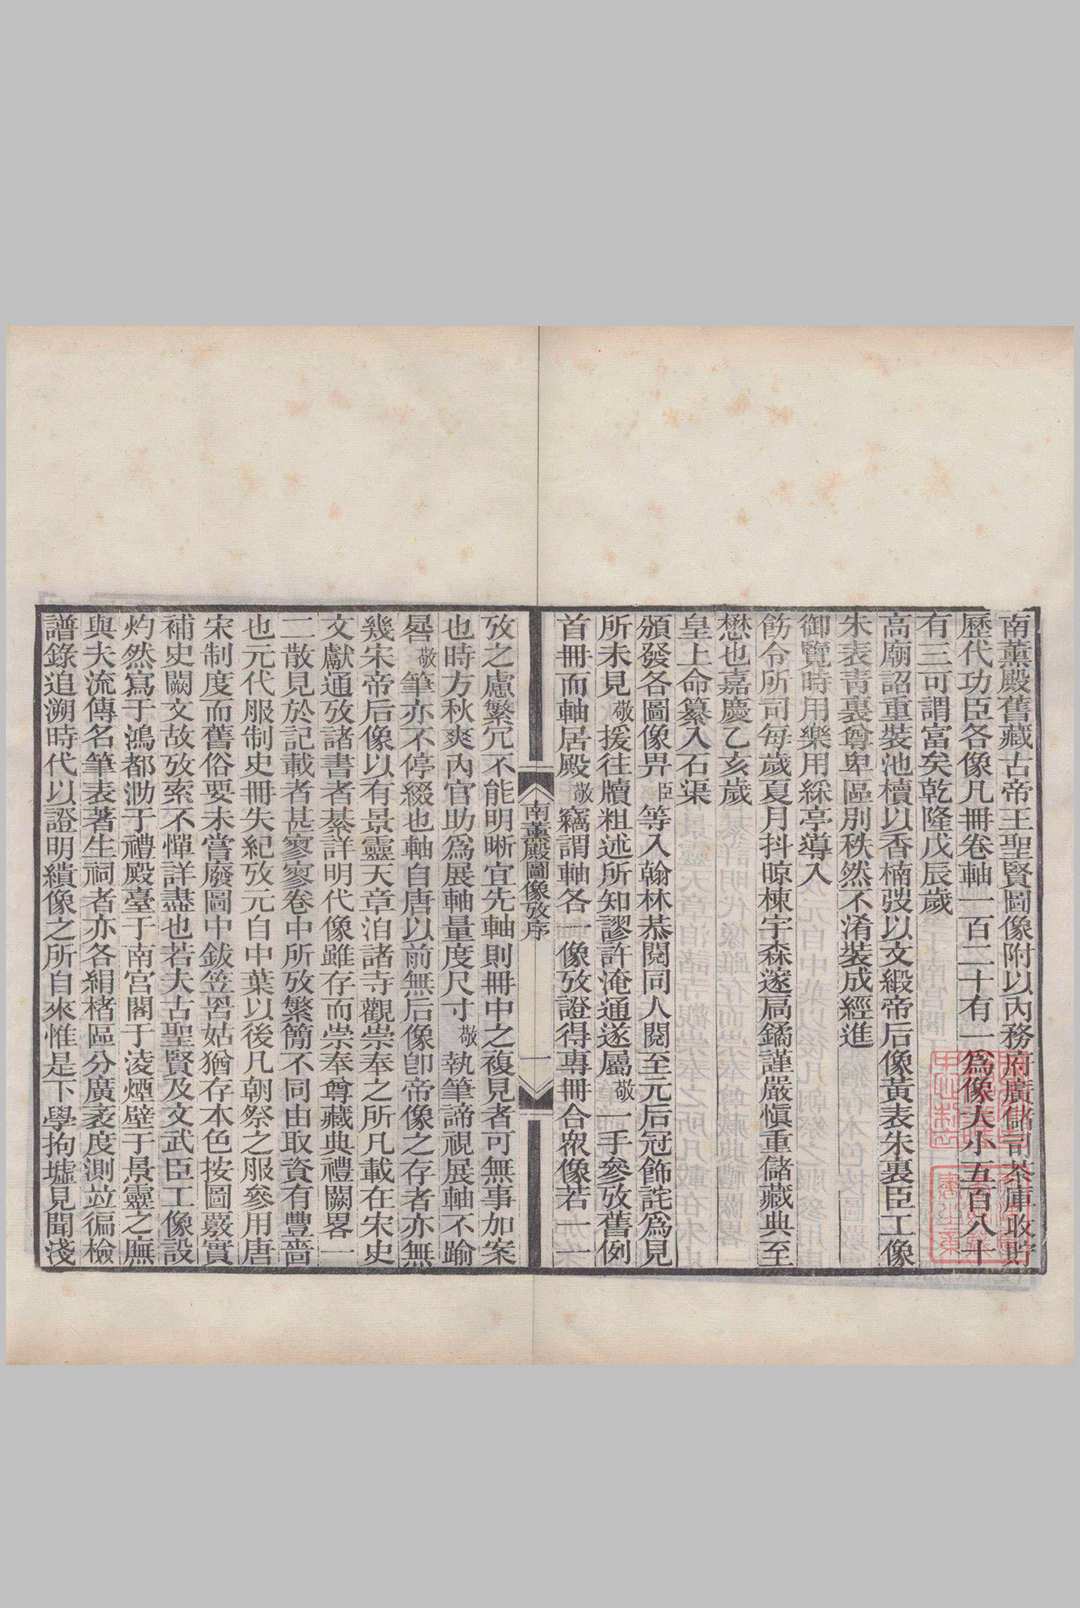 南薰殿舊藏古帝王聖賢圖像附以內務府廣儲司茶庫收貯
歷代功臣各像凡冊卷軸一百二十有一為像大小五百八十
有三可謂富矣乾隆戊辰歲
高廟詔重裝池櫝以香楠弢以文緞帝后像黃表朱裏臣工像
朱表青裏尊卑區別秩然不淆裝成經進
御覽時用樂用綵亭導入
飭令所司每歲夏月抖晾棟宇森邃扃鐍謹嚴愼重儲藏典至
懋也嘉慶乙亥歲
皇上命纂入石渠
頒發各圖像畀臣等入翰林恭閱同人閱至元后冠飾詫為見
所未見敬援往牘粗述所知謬許淹通遂屬敬一手參攷舊例
首冊而軸居殿敬竊謂軸各一像攷證得專冊合衆像若一一
南薰殿圖像攷序
一
攷之慮繁冗不能明晰宜先軸則冊中之複見者可無事加案
也時方秋爽內官助為展軸量度尺寸敬執筆諦視展軸不踰
晷敬筆亦不停綴也軸自唐以前無后像卽帝像之存者亦無
幾宋帝后像以有景靈天章洎諸寺觀崇奉之所凡載在宋史
文獻通攷諸書者綦詳明代像雖存而崇奉尊藏典禮闕畧一
二散見於記載者甚寥寥卷中所攷繁簡不同由取資有豐嗇
也元代服制史冊失紀攷元自中葉以後凡朝祭之服參用唐
宋制度而舊俗要未嘗廢圖中鈸笠罟姑猶存本色按圖覈實
補史闕文故攷索不憚詳盡也若夫古聖賢及文武臣工像設
灼然寫于鴻都泐于禮殿臺于南宮閣于凌煙壁于景靈之廡
與夫流傳名筆表著生祠者亦各絹楮區分廣袤度測竝徧檢
譜錄追溯時代以證明繢像之所自來惟是下學拘墟見聞淺